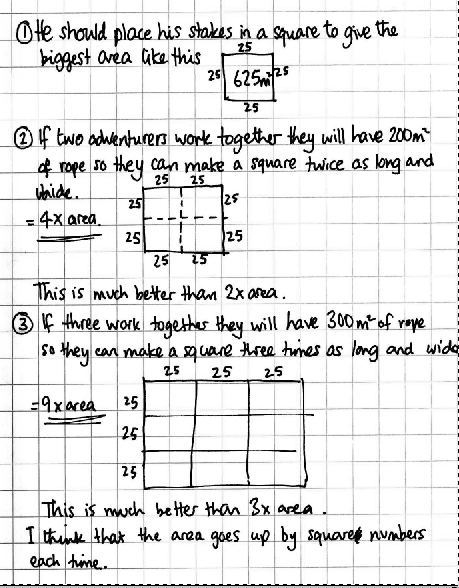 ① He should place his stakes in a square to give the
biggest area like this
25
25 625m² 25
25
② If two adventurers work together they will have 200m²
of rope so they can make a square twice as long and
whide.
25 25
25 25
= 4x area.
25 25
25 25
This is much better than 2x area.
③ If three work together they will have 300m² of rope
so they can make a square three times as long and wide
25 25 25
= 9x area 25
25
25
This is much better than 3x area.
I think that the area goes up by square numbers
each time.